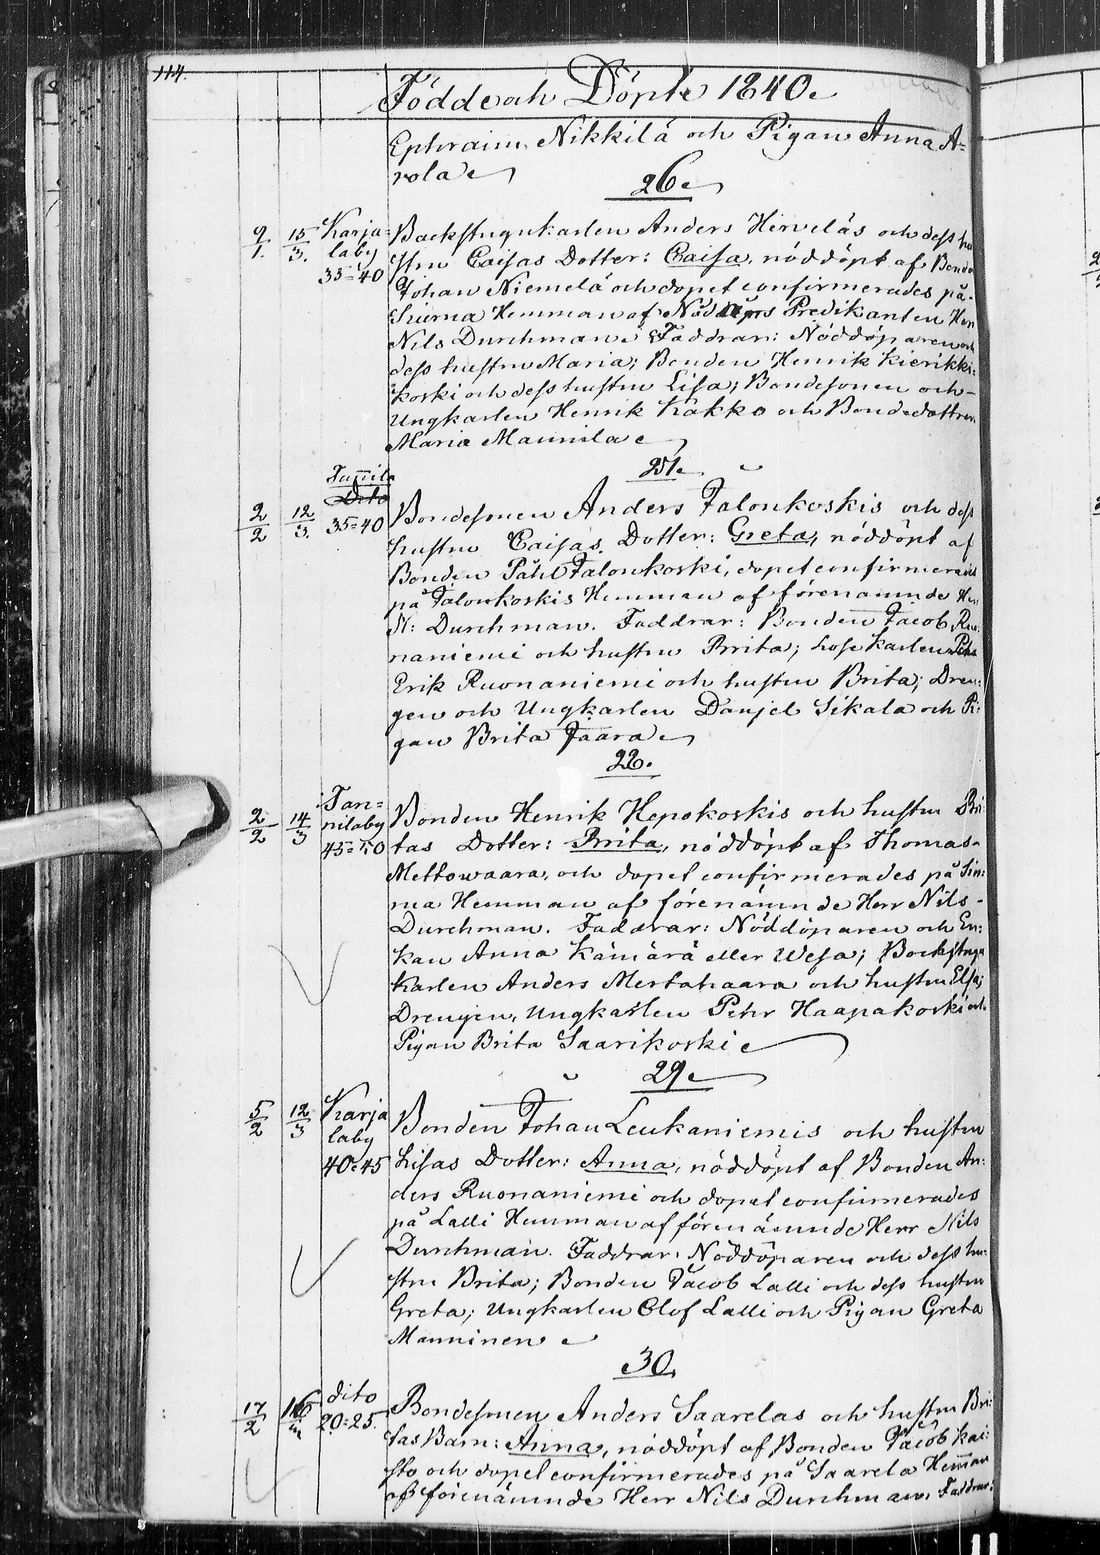 114.
Födde och Döpte 1840.
Ephraim Nikkilä och Pigan Anna A=
rola
26
9/1. 15/3. Karja=
laby
35=40
Backstugukarlen Anders Hirveläs och dess hu
stru Caisas Dotter: Caisa, nöddöpt af Bonden
Johan Niemelä och dopet confirmerades på
Hemman af Nöd Predikanten Herr
Nils Durchman. Faddrar: Nöddöparen och
dess hustru Maria; Bonden Henrik Kierikki=
koski och dess hustru Lisa; Bondesonen och
Ungkarlen Henrik Kakko och Bondedottren
Maria Maunila
27.
2/2 12/3.
Dito
35=40
Bondesonen Anders Jalonkoskis och dess
hustru Caisas Dotter: Greta, nöddöpt af
Bonden Påhl Jalonkoski, dopet confirmerades
på Jalonkoskis Hemman af förenämnde Herr
N: Durchman. Faddrar: Bonden Jacob Ruo
naniemi och hustru Brita; Losekarlen
Erik Ruonaniemi och hustru Brita; Dren=
gen och Ungkarlen Danjel Sikala och Pi=
gan Brita Jaara
28.
2/2 14/3 Tan=
nilaby
45=50
Bonden Henrik Hepokoskis och hustru Bri
tas Dotter: Brita, nöddöpt af Thomas
Mettowaara, och dopet confirmerades på Sim=
ma Hemman af förenämnde Herr Nils
Durchman. Faddrar: Nöddöparen och En=
kan Anna Kämärä eller Wesa; Backstugu
karlen Anders Mertahaara och hustru Elsa;
Drengen, Ungkarlen Pehr Haapakoski och
Pigan Brita Saarikoski
29
5/2 12/3 Karja
laby
40=45
Bonden Johan Leukaniemis och hustru
Lisas Dotter: Anna, nöddöpt af Bonden An=
ders Ruonaniemi och dopet confirmerades
på Lalli Hemman af förenämnde Herr Nils
Durchman. Faddrar: Nöddöparen och dess hu=
stru Brita; Bonden Jacob Lalli och dess hustru
Greta; Ungkarlen Olof Lalli och Pigan Greta
Manninen
30.
17/2 dito
20=25.
Bondesonen Anders Saarelas och hustru Bri=
tas Barn: Anna, nöddöpt af Bonden Jacob Kai=
sto och dopet confirmerades på Saarela Hemman
af förenämnde Herr Nils Durchman. Faddrar: